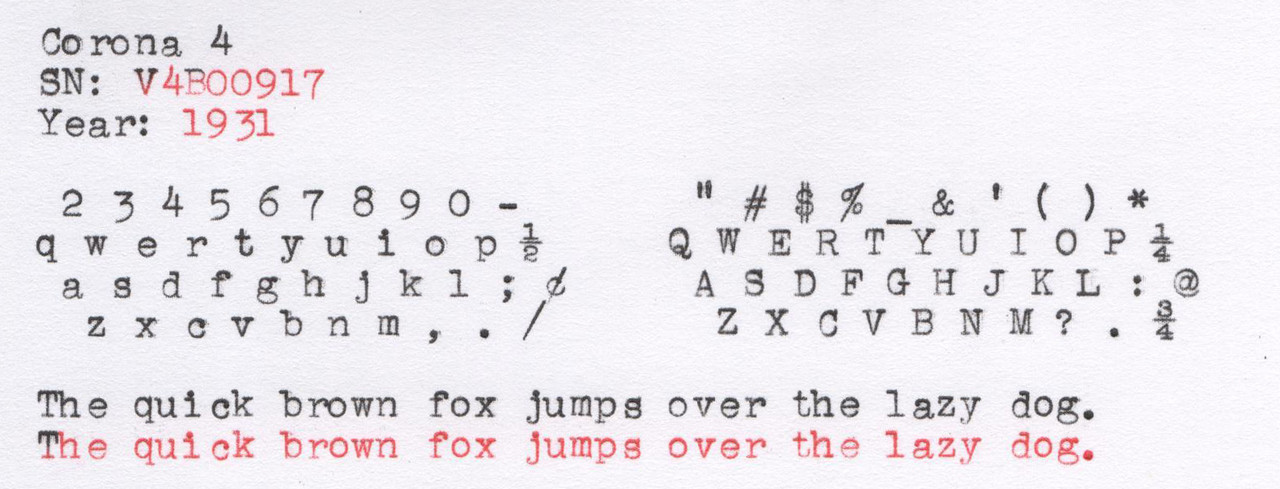 Corona 4
SN: V4B00917
Year: 1931
2 3 4 5 6 7 8 9 0 - " # $ % _ & ' ( ) *
q w e r t y u i o p ½ Q W E R T Y U I O P ¼
a s d f g h j k l ; ¢ A S D F G H J K L : @
z x c v b n m , . / Z X C V B N M ? . ¾
The quick brown fox jumps over the lazy dog.
The quick brown fox jumps over the lazy dog.